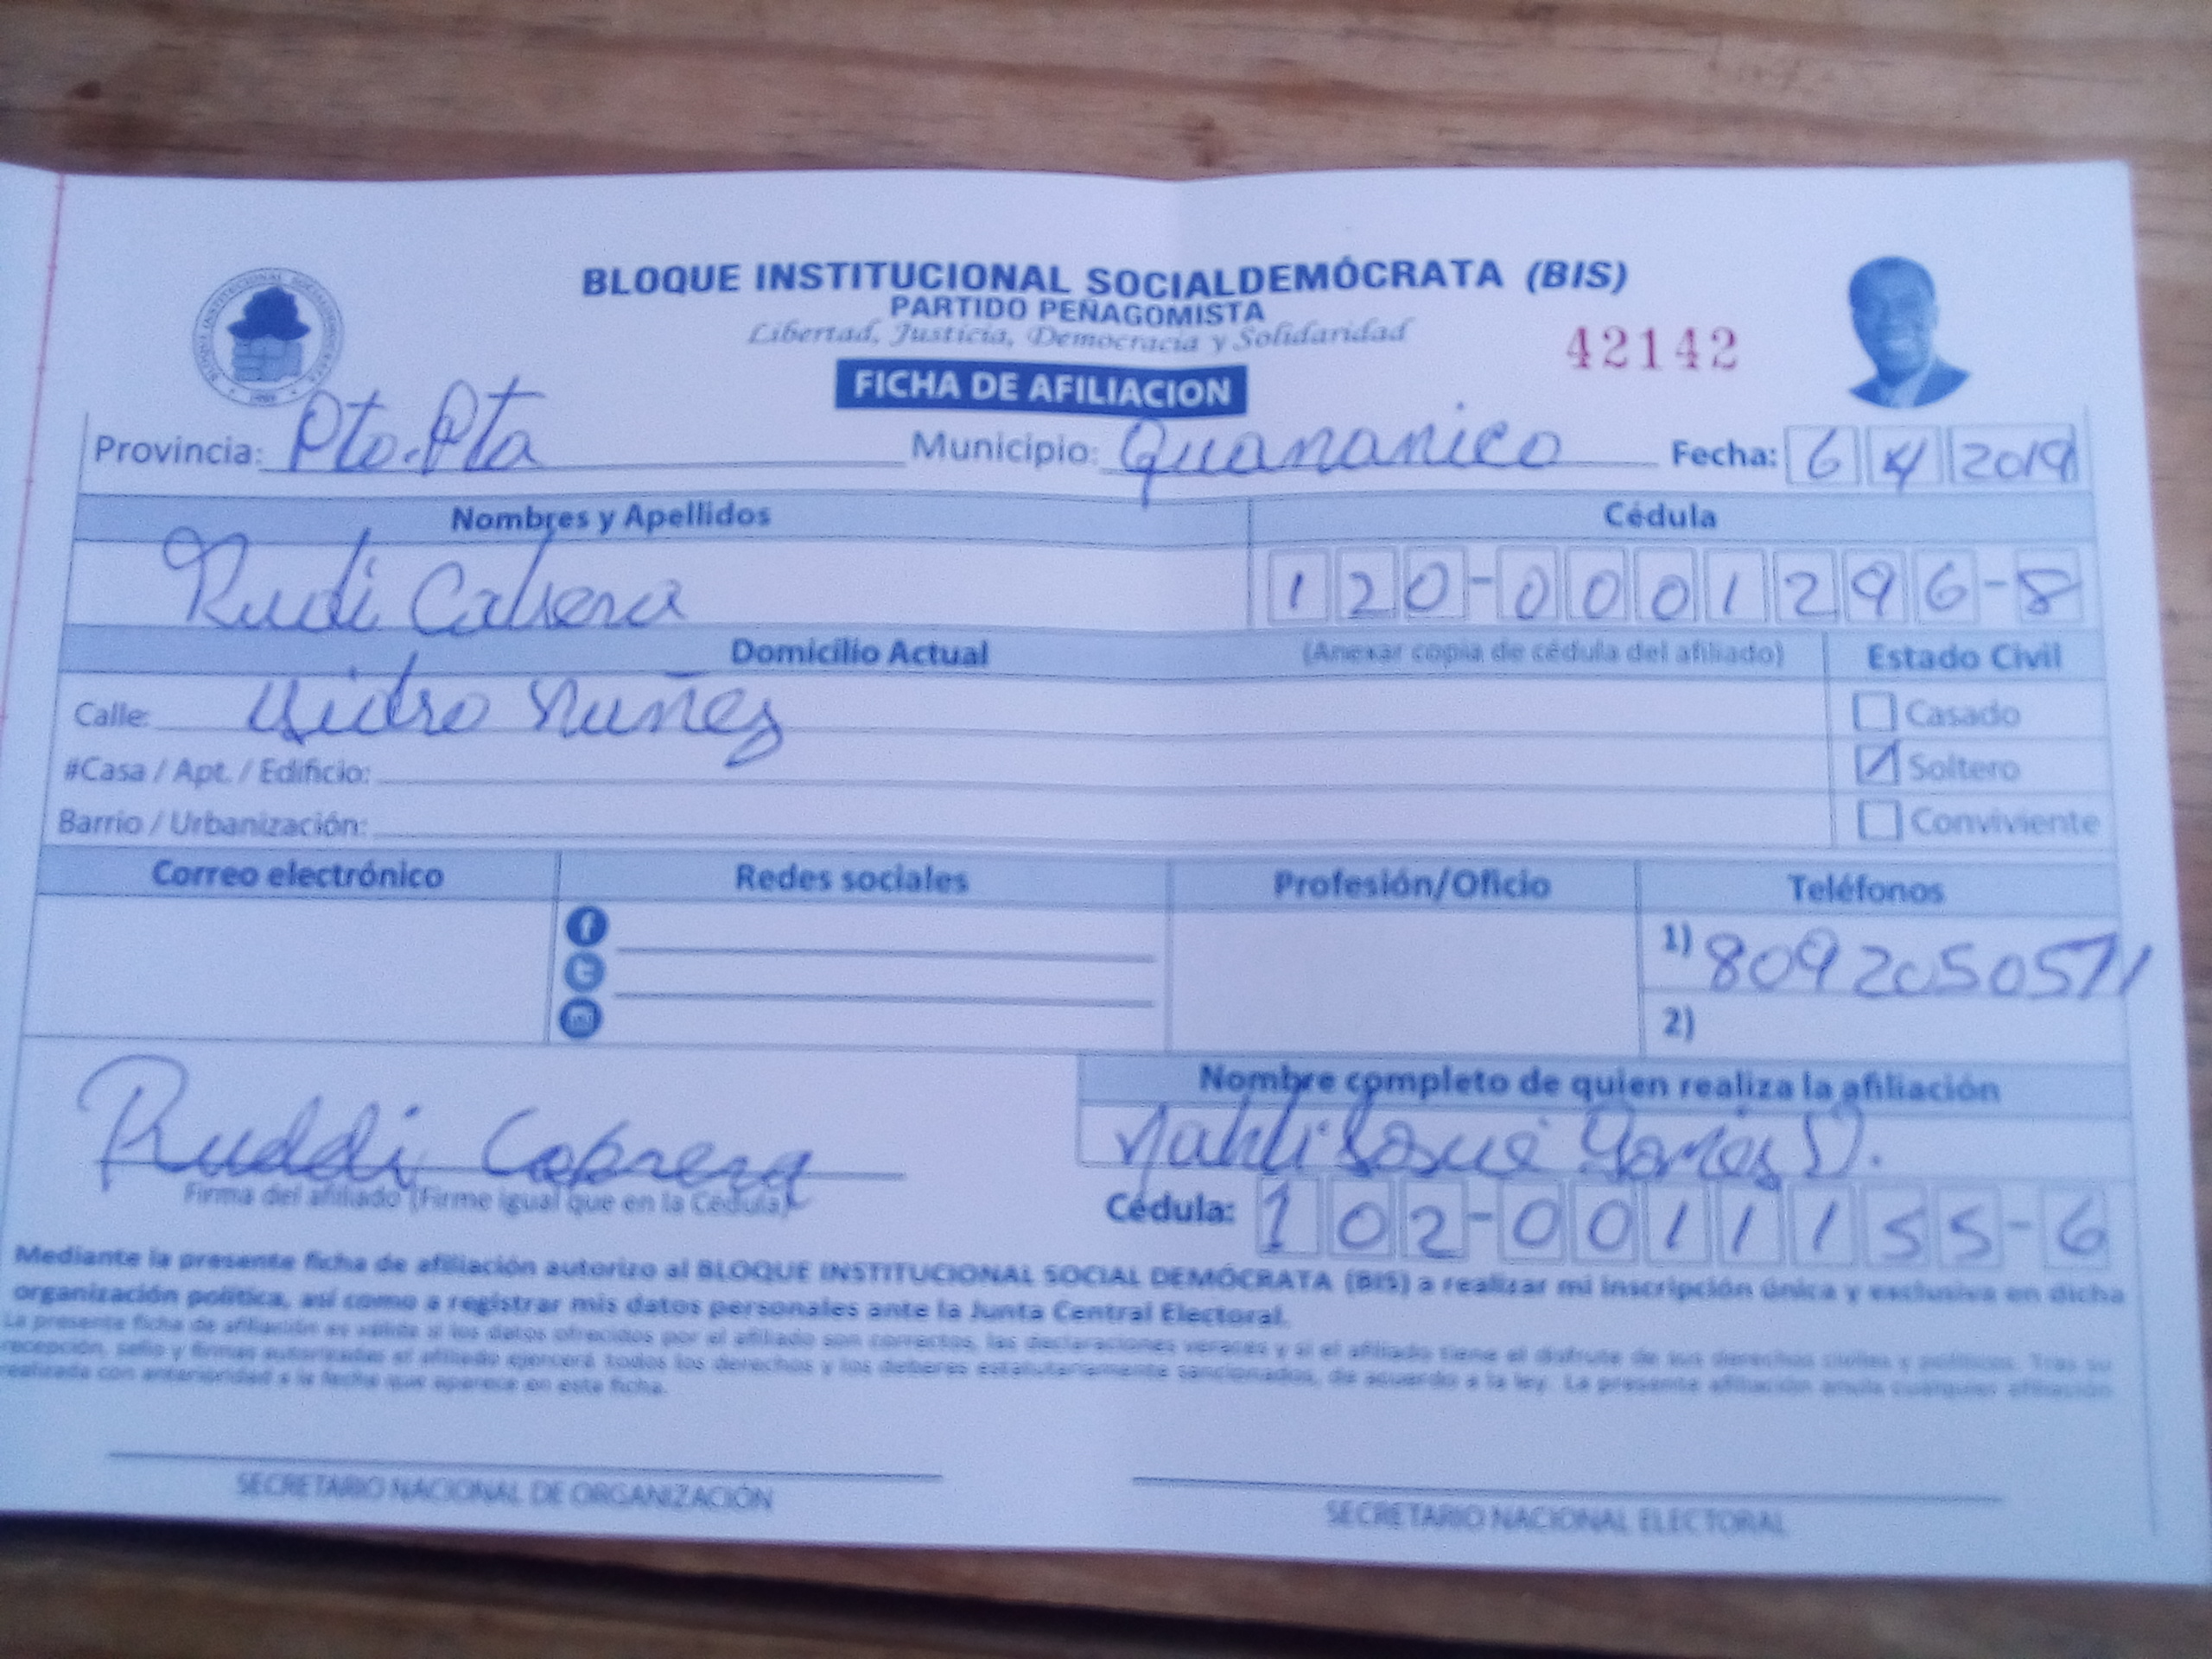 BLOQUE INSTITUCIONAL SOCIALDEMÓCRATA (BIS)
PARTIDO PEÑAGOMISTA
Libertad, Justicia, Democracia y Solidaridad
42142
FICHA DE AFILIACION
Provincia: Pto. Pta Municipio: Guananico Fecha: 6 4 2019
Nombres y Apellidos Cédula
Rudi Cabrera 120-0001296-8
Domicilio Actual (Anexar copia de cédula del afiliado) Estado Civil
Calle: Isidro Nuñez Casado
#Casa / Apt. / Edificio: Soltero
Barrio / Urbanización: Conviviente
Correo electrónico Redes sociales Profesión/Oficio Teléfonos
1) 8092050571
2)
Nombre completo de quien realiza la afiliación
Ruddi Cabrera
Josué D.
Firma del afiliado (Firme igual que en la Cédula)
Cédula: 102-0011155-6
Mediante la presente ficha de afiliación autorizo al BLOQUE INSTITUCIONAL SOCIAL DEMÓCRATA (BIS) a realizar mi inscripción única y exclusiva en dicha
organización política, así como a registrar mis datos personales ante la Junta Central Electoral.
La presente ficha de afiliación es válida si los datos ofrecidos por el afiliado son correctos, las declaraciones veraces y si el afiliado tiene el disfrute de sus derechos civiles y políticos. Tras su
recepción, sello y firmas autorizadas el afiliado ejercerá todos los derechos y los deberes estatutariamente sancionados, de acuerdo a la ley. La presente afiliación anula cualquier afiliación
realizada con anterioridad a la fecha que aparece en esta ficha.
SECRETARIO NACIONAL DE ORGANIZACIÓN SECRETARIO NACIONAL ELECTORAL